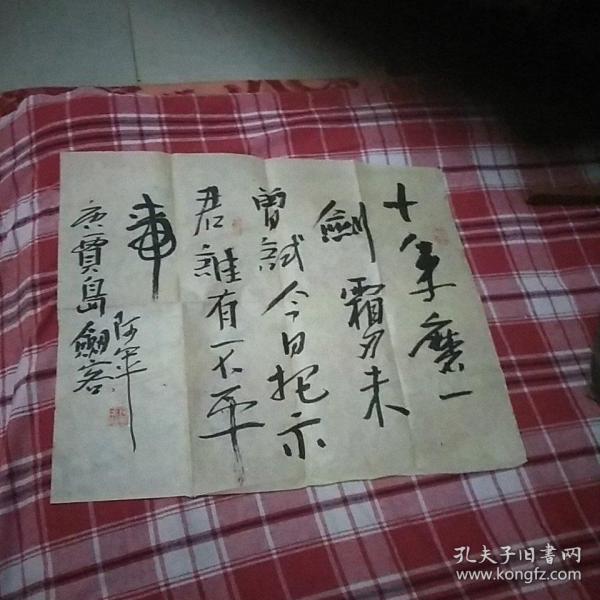 十年磨一
劍霜刃未
曾試今日把示
君誰有不平
事
唐賈島劍客
阿平
孔夫子旧书网
www.kongfz.com